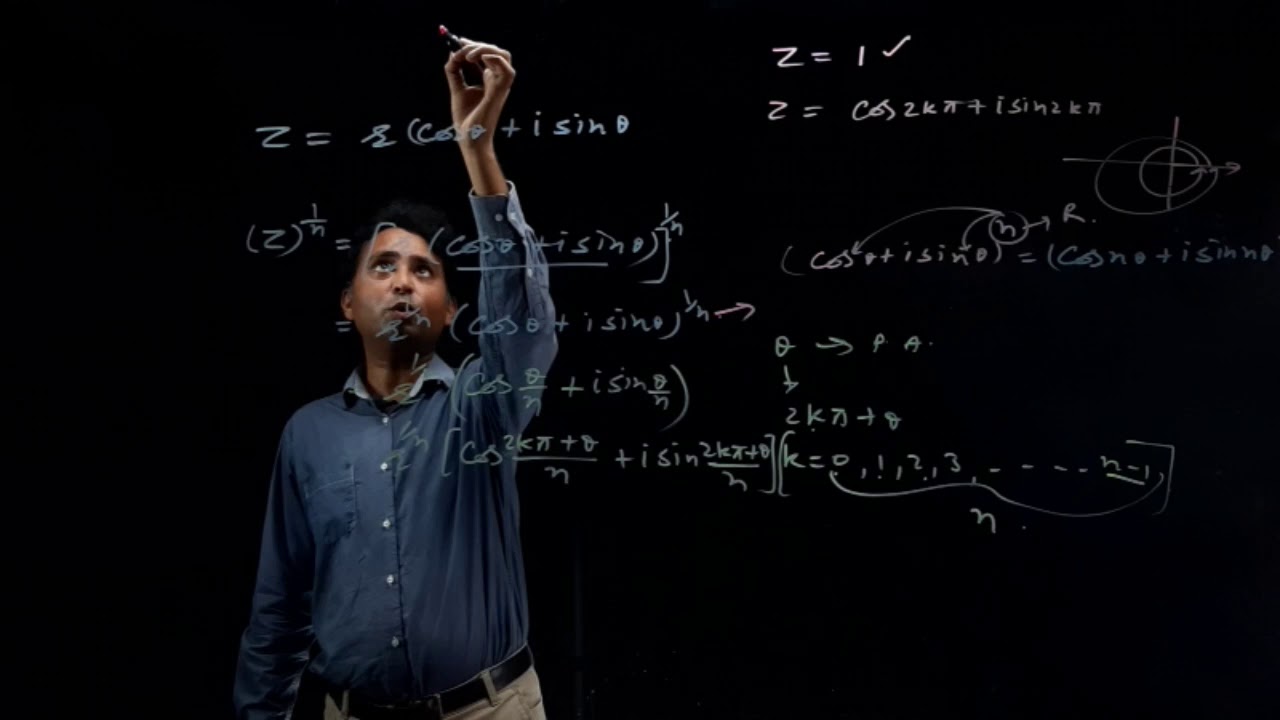 z = r (cosθ + i sinθ
(z)^{1/n} = [r (cosθ + i sinθ)]^{1/n}
= r^{1/n} (cosθ + i sinθ)^{1/n} →
r^{1/n} (cos θ/n + i sin θ/n)
r^{1/n} [cos (2kπ+θ)/n + i sin (2kπ+θ)/n] [k = 0, 1, 2, 3, - - - - n-1,]
n
z = 1 ✓
z = cos 2kπ + i sin 2kπ
n → R.
(cosθ + i sinθ) = (cos nθ + i sin nθ
θ → P. A.
↓
2kπ + θ